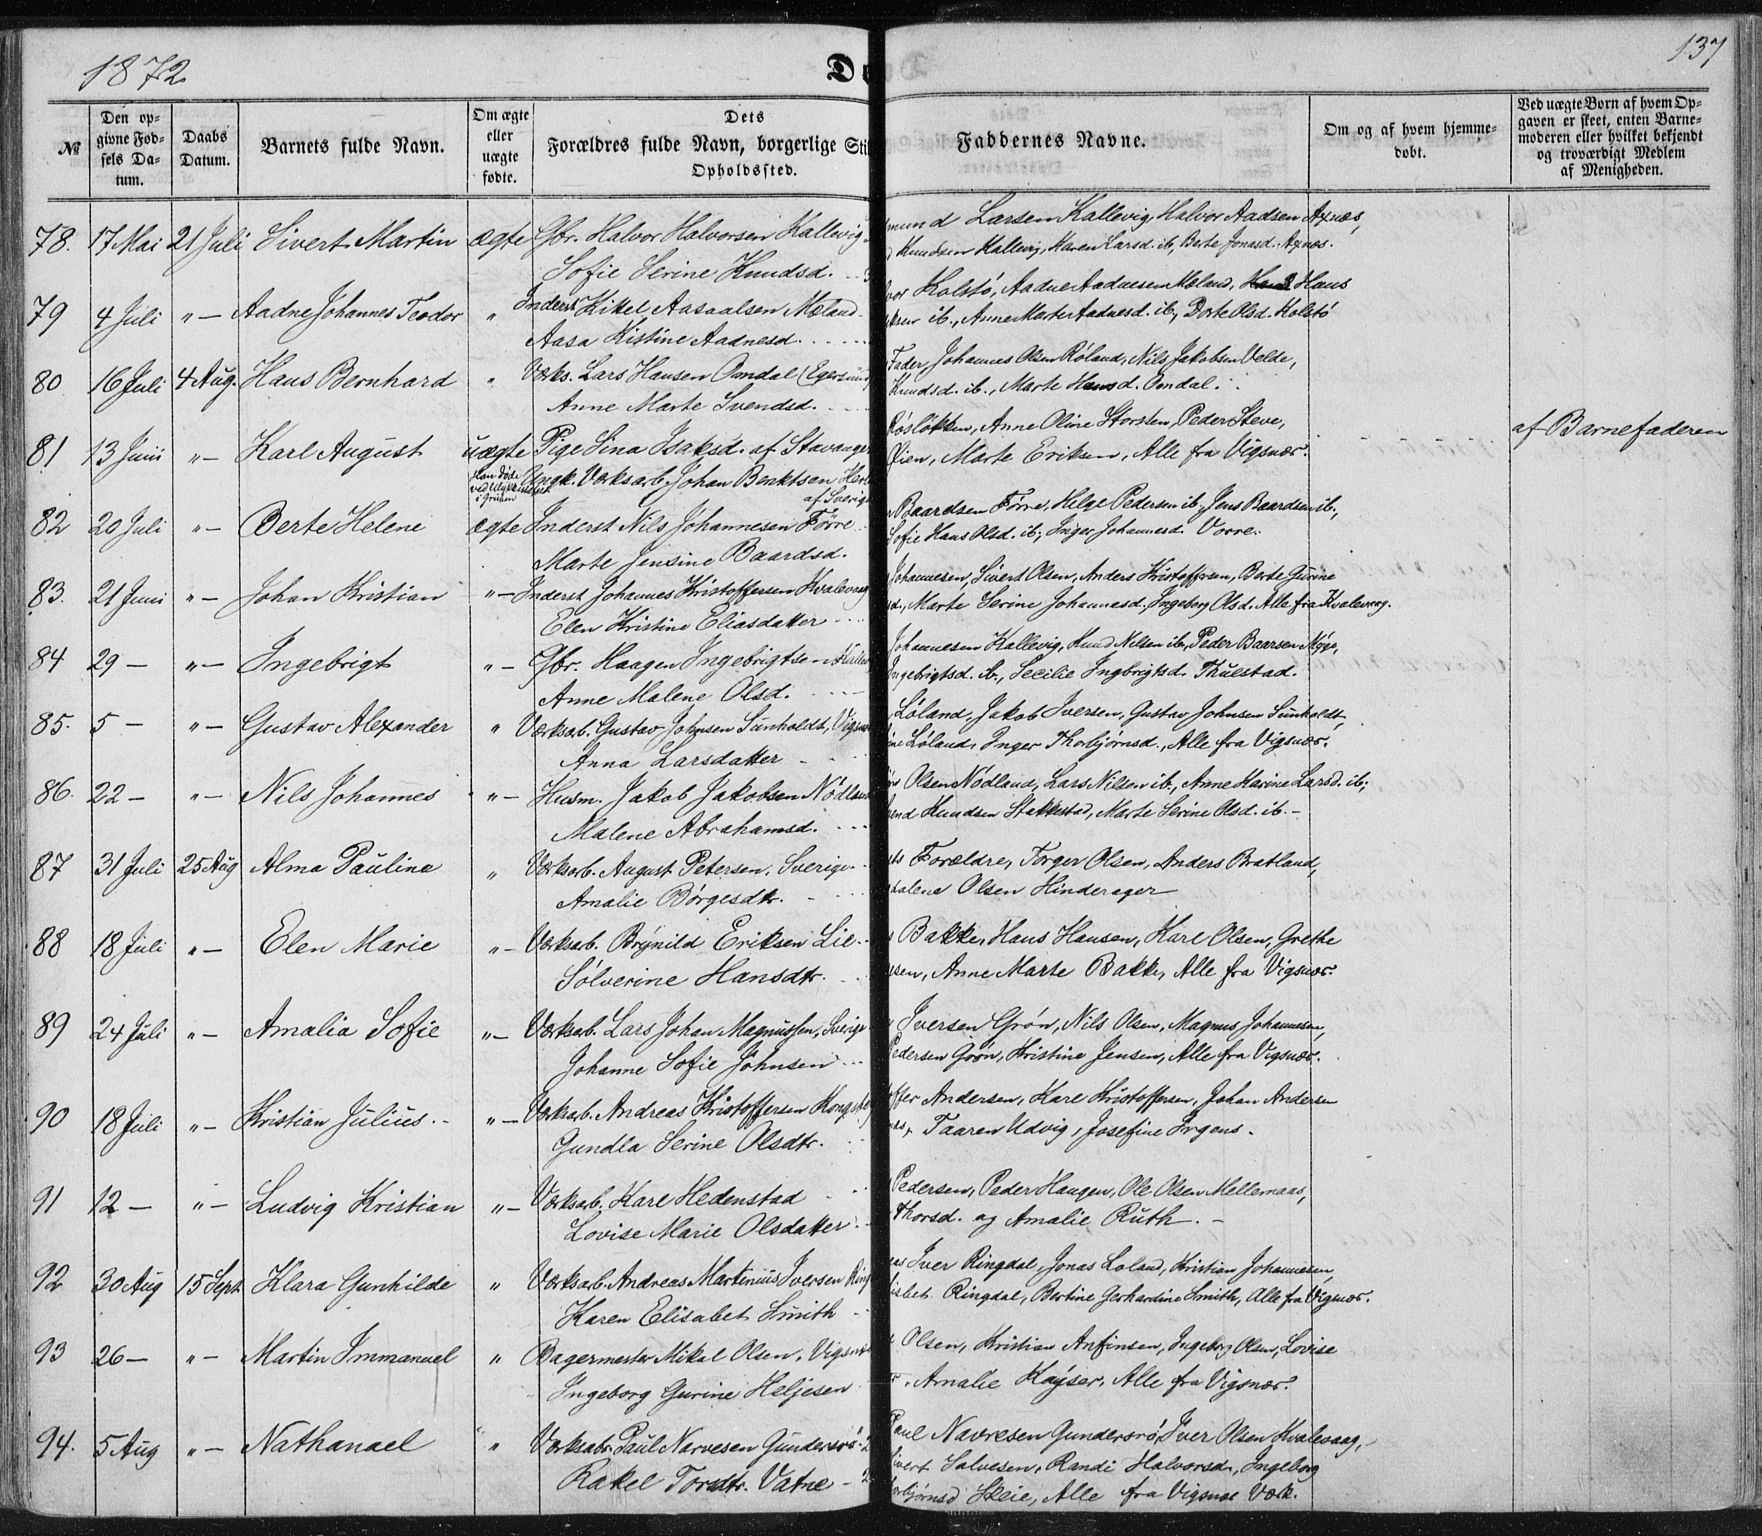 1872
137
№
Den op-
givne Fød-
sels Da-
tum.
Daabs
Datum.
Barnets fulde Navn.
Om ægte
eller
uægte
fødte.
Dets
Forældres fulde Navn, borgerlige Sti
Opholdssted.
Faddernes Navne.
Om og af hvem hjemme-
døbt.
Ved uægte Børn af hvem Op-
gaven er skeet, enten Barne-
moderen eller hvilket bekjendt
og troværdigt Medlem
af Menigheden.
78. 17 Mai 21 Juli Sivert Martin ægte Gbr. Halvor Halvorsen Kallevig
Sofie Serine Knudsd.
mund Larsen Kallevig, Halvor Aadsen Axnæs,
Knudsen Kallevig, Maren Larsd. ib, Berte Jonasd. Axnæs.
79 4 Juli "— Aadne Johannes Teodor " Inderst Kikel Aasaalsen Mæland
Aasa Kistine Aadnesd.
Kolstø, Aadne Aadnesen Mæland, Hans
ib., Anne Marte Aadnesd. ib, Dorte Olsd. Kolstø
80 16 Juli 4 Aug. Hans Bernhard " Værks. Lars Hansen Omdal (Egersund
Anne Marte Svendsd.
Fader, Johannes Olsen Røland, Nils Jakobsen Velde,
Knudsd. ib., Marte Hansd. Omdal.
81 13 Juni "— Karl August uægte Pige Sina Isaksd. af Stavanger
Ungk. Værksarb. Johan Benktsen
af Sverige
Han døde
ved Ulykkestilfældet
i Gruben
Røsløkken, Anne Oline Storsten, Peder Steve,
Marte Eriksen, Alle fra Vigsnæs.
af Barnefaderen
82 20 Juli "— Berte Helene ægte Inderst Nils Johannesen Førre
Marte Jensine Baardsd.
Baardsen Førre, Helge Pedersen ib, Jens Baardsen ib.,
Sofie Hans Olsd. ib; Inger Johannesd. Vorre.
83. 21 Juni "— Johan Kristian "— Inderst Johannes Kristoffersen Kvalevaag
Elen Kristine Eliasdatter
Johannesen, Sivert Olsen, Anders Kristoffersen, Berte Gurine
Marte Serine Johannesd. Ingeborg Olsd. Alle fra Kvalevaag.
84 29 — "— Ingebrigt "— Gbr. Haagen Ingebrigtsen
Anne Malene Olsd.
Johannesen Kallevig, Knud Nilsen ib, Peder Baarsen Myge,
Ingebrigtsd. ib., Secilie Ingbrigtsd. Thulstad.
85. 5 — "— Gustav Alexander " Værksab. Gustav Johnsen Sunholdt, Vigsnæs
Anna Larsdatter
Løland, Jakob Iversen, Gustav Johnsen Sunholdt,
Løland, Inger Thorbjørnsd., Alle fra Vigsnæs.
86. 22 — "— Nils Johannes "— Husm. Jakob Jakobsen Nødland
Malene Abrahamsd.
Olsen Nødland, Lars Nilsen ib., Anne Karine Larsd. ib;
Knudsen Stakkestad, Marte Serine Olsd. ib. —
87 31 Juli 25 Aug Alma Pauline " Værksarb. August Petersen, Sverige
Amalie Børgesdtr.
Forældre, Torger Olsen, Anders Bratland,
Olsen Hinderager
88 18 Juli "— Elen Marie "— Værksab. Brynild Eriksen Lie
Sølverine Hansdtr.
Bakke, Hans Hansen, Karl Olsen, Grethe
Anne Marte Bakke, Alle fra Vigsnæs.
89 24 Juli "— Amalia Sofie "— Værksab. Lars Johan Magnussen, Sverige
Johanne Sofie Johnsen
Iversen Grøn, Nils Olsen, Magnus Johannesen,
Pedersen Grøn, Kristine Jensen, Alle fra Vigsnæs.
90 18 Juli "— Kristian Julius. "— Værksab. Andreas Kristoffersen
Gundla Serine Olsdtr.
Andersen, Kare Kristoffersen, Johan Andersen
Taaren Udvig, Josefine Irgens.
91 12 — "— Ludvig Kristian "— Værksarb. Karl Hedenstad
Lovise Marie Olsdatter
Pedersen, Peder Haugen, Ole Olsen Mellemaas,
Thorsd. og Amalie Ruth. —
92 30 Aug 15 Sept Klara Gunhilde " Værksarb. Andreas Martinius Iversen Ring
Karen Elisabet Smith
Iver Ringdal, Jonas Loland, Kristian Johannesen,
Ringdal, Bertine Gerhardine Smith, Alle fra Vigsnæs.
93 26 — "— Martin Immanuel " Bagermester Mikal Olsen, Vigsnæs
Ingeborg Gurine Heljesen
Olsen, Kristian Anfinsen, Ingeborg Olsen, Lovise
Amalie Kayser. Alle fra Vigsnæs.
94. 5 Aug "— Nathanael " Værksabr. Paul Narvesen Gundersrø
Rakel Torsdtr. Vatne
Paul Navresen Gundersrø, Iver Olsen Kvalevaag,
Salvesen, Randi Halvorsd., Ingeborg
Skeie, Alle fra Vigsnæs Værk.